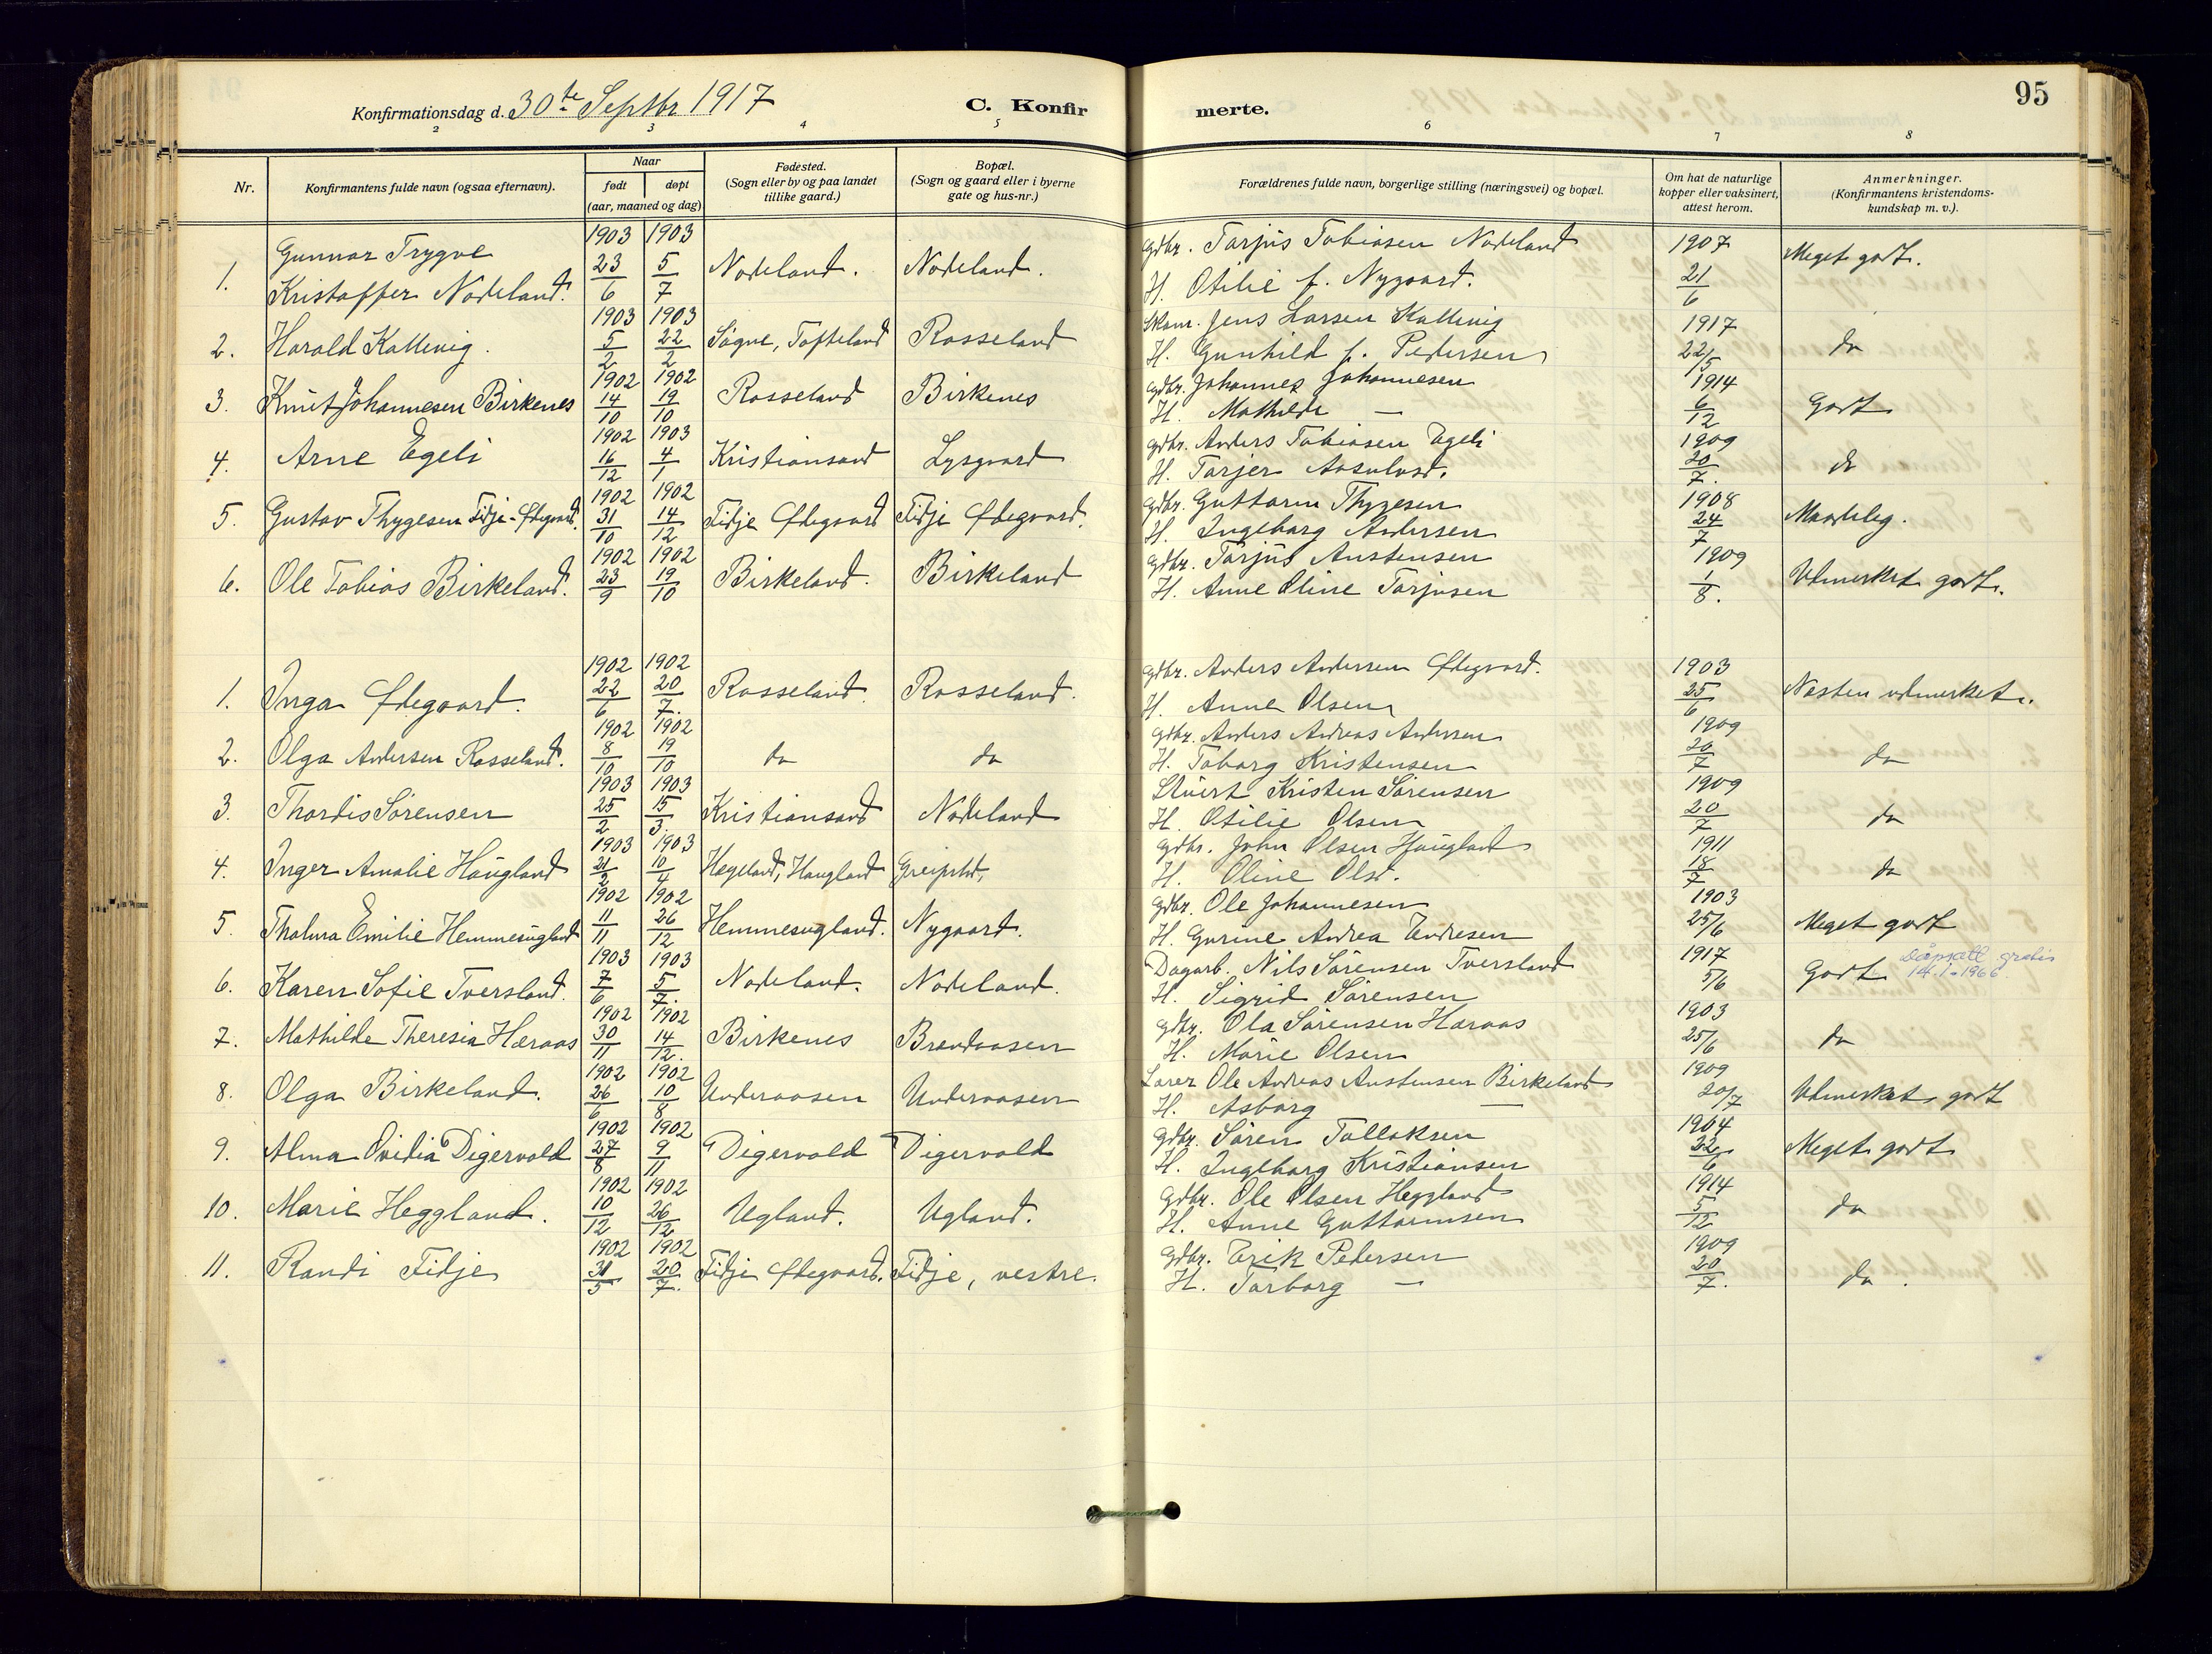 95
Konfirmationsdag d. 30te Septbr 1917
C. Konfirmerte.
2 3 4 5 6 7 8
Nr.
Konfirmantens fulde navn (ogsaa efternavn).
Naar
født døpt
(aar, maaned og dag)
Fødested.
(Sogn eller by og paa landet
tillike gaard.)
Bopæl.
(Sogn og gaard eller i byerne
gate og hus-nr.)
Forældrenes fulde navn, borgerlige stilling (næringsvei) og bopæl.
Om hat de naturlige
kopper eller vaksinert,
attest herom.
Anmerkninger.
(Konfirmantens kristendoms-
kundskap m. v.).
Gunnar Trygve 1903 1903 gdbr. Tarjus Tobiasen Nodeland 1907 Meget godt.
1. Kristoffer Nodeland. 23/6 5/7 Nodeland. Nodeland. H. Otilie f. Nygaard. 21/6
1903 1903 Jens Larsen Kallevig 1917
2. Harald Kallevig. 5/2 22/2 Søgne, Tofteland Rosseland H. Gunhild f. Pedersen 22/5 do
1902 1902 gdbr. Johannes Johannesen 1914
3. Knut Johannesen Birkenes 14/10 19/10 Rosseland Birkenes H. Mathilde — 6/12 Godt
1902 1903 gdbr. Anders Tobiasen Egeli 1909
4. Arne Egeli 16/12 4/1 Kristiansand Lysgaard H. Tarjer Aasulvsd. 20/7. do
1902 1902 gdbr. Guttorm Thygesen 1908
5. Gustav Thygesen Fidje-Ødegaard. 31/10 14/12 Fidje Ødegaard Fidje Ødegaard. H. Ingeborg Andersen 24/7 Maadelig.
1902 1902 gdbr. Tarjus Austensen 1909
6. Ole Tobias Birkeland. 23/9 19/10 Birkeland. Birkeland H. Anne Oline Tarjusen 1/8. Udmerket godt.
1902 1902 gdbr. Anders Andersen Ødegaard. 1903
1. Inga Ødegaard. 22/6 20/7. Rosseland. Rosseland. H. Anne Olsen 25/6 Næsten udmerket.
1902 1902 gdbr. Anders Andreas Andersen 1909
2. Olga Andersen Rosseland. 8/10 19/10 do do H. Toborg Kristensen 20/7 do
1903 1903 Stuert Kristen Sørensen 1909
3. Thordis Sørensen 25/2 15/3. Kristiansand Nodeland H. Otilie Olsen 20/7 do
1903 1903 gdbr. John Olsen Haugland 1911
4. Inger Amalie Haugland 21/2 10/4 Hægeland, Haugland Greipsld. H. Oline Olsd. 18/7 do
1902 1902 gdbr. Ole Johannesen 1903
5. Thalma Emilie Hemmesugland 11/11 26/12 Hemmesugland. Nygaard. H. Gurine Andrea Endresen 25/6 Meget godt
1903 1903 Dagarb. Nils Sørensen Tversland 1917 Dåpsatt. gratis
6. Karen Sofie Tversland. 7/6 5/7. Nodeland. Nodeland. H. Sigrid Sørensen 5/6 Godt 14.1.1966
1902 1902 gdbr. Ola Sørensen Hæraas 1903
7. Mathilde Theresia Hæraas 30/11 14/12. Birkenes Brandaasen H. Marie Olsen 25/6 do
1902 1902 Lærer Ole Andreas Austensen Birkeland 1909
8. Olga Birkeland. 26/6 10/8 Underaasen Underaasen H. Asborg — 20/7 Udmerket godt
1902 1902 gdbr. Søren Tallaksen 1904
9. Alma Ovidia Digervold 27/8 9/11 Digervold Digervold H. Ingeborg Kristiansen 22/6 Meget godt
1902 1902 gdbr. Ole Olsen Heggland 1914
10. Marie Heggland. 10/12 26/12 Ugland. Ugland. H. Anne Guttormsen 5/12 do
1902 1902 gdbr. Erik Pedersen 1909
11. Randi Fidje 31/5 20/7. Fidje Ødegaard. Fidje, vestre. H. Torborg — 20/7. do.